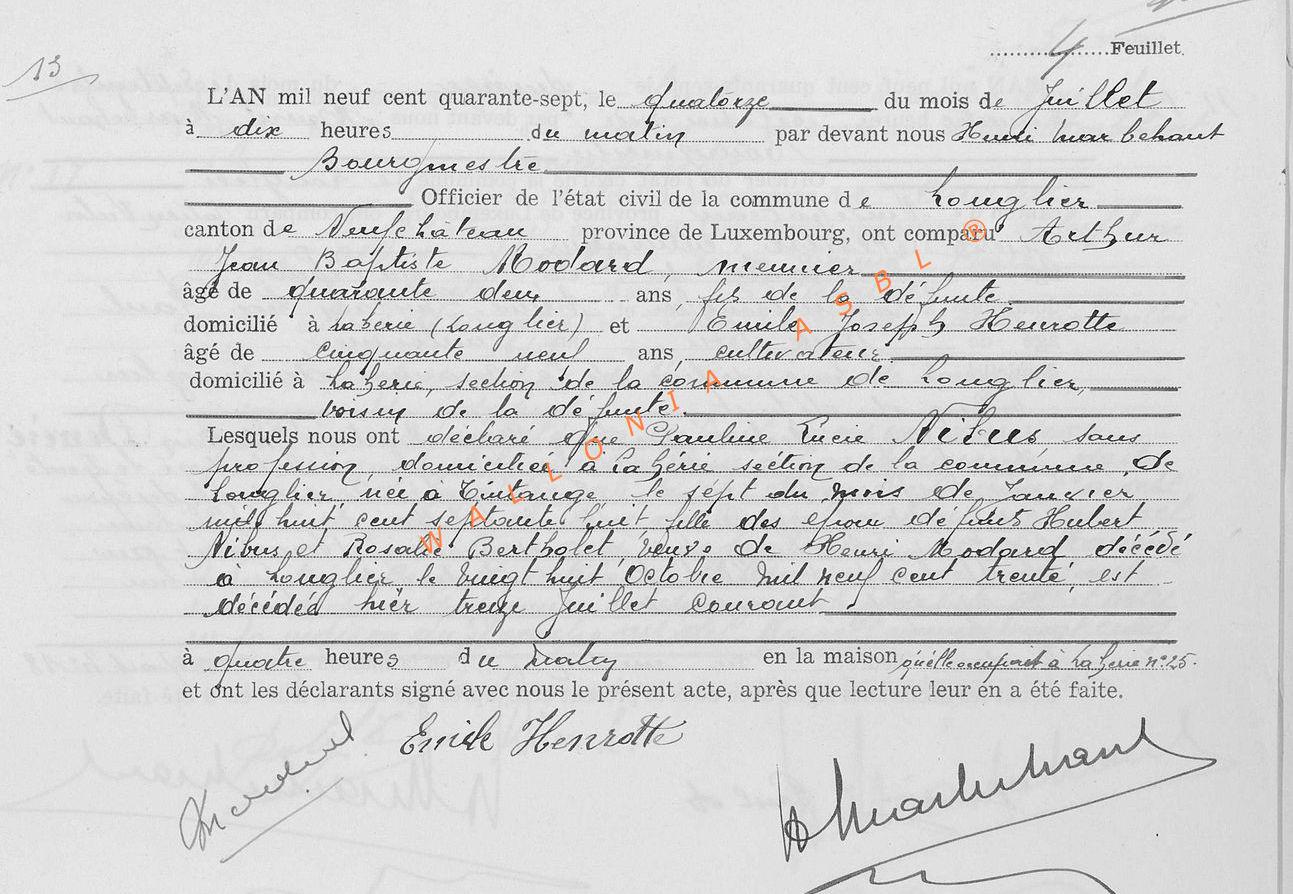 4 Feuillet.
13
L'AN mil neuf cent quarante-sept, le quatorze du mois de Juillet
à dix heures du matin par devant nous Henri Marbehant
Bourgmestre
Officier de l'état civil de la commune de Longlier
canton de Neufchateau province de Luxembourg, ont comparu Arthur
Jean Baptiste Modard, meunier
âgé de quarante deux ans, fils de la défunte
domicilié à Lahérie (Longlier) et Emile Joseph Henrotte
âgé de cinquante neuf ans, cultivateur
domicilié à Lahérie, section de la commune de Longlier,
voisin de la défunte.
Lesquels nous ont déclaré que Pauline Lucie Nibus sans
profession, domiciliée à Lahérie section de la commune de
Longlier née à Tintange le sept du mois de Janvier
mil huit cent septante huit fille des époux défunts Hubert
Nibus et Rosalie Bertholet, veuve de Henri Modard décédé
à Longlier le vingt huit Octobre mil neuf cent trente, est
décédée hier treize Juillet courant.
à quatre heures du matin en la maison qu'elle occupait à Laherie n° 25.
et ont les déclarants signé avec nous le présent acte, après que lecture leur en a été faite.
Emile Henrotte
H Marbehant
WALLONIA ASBL ®